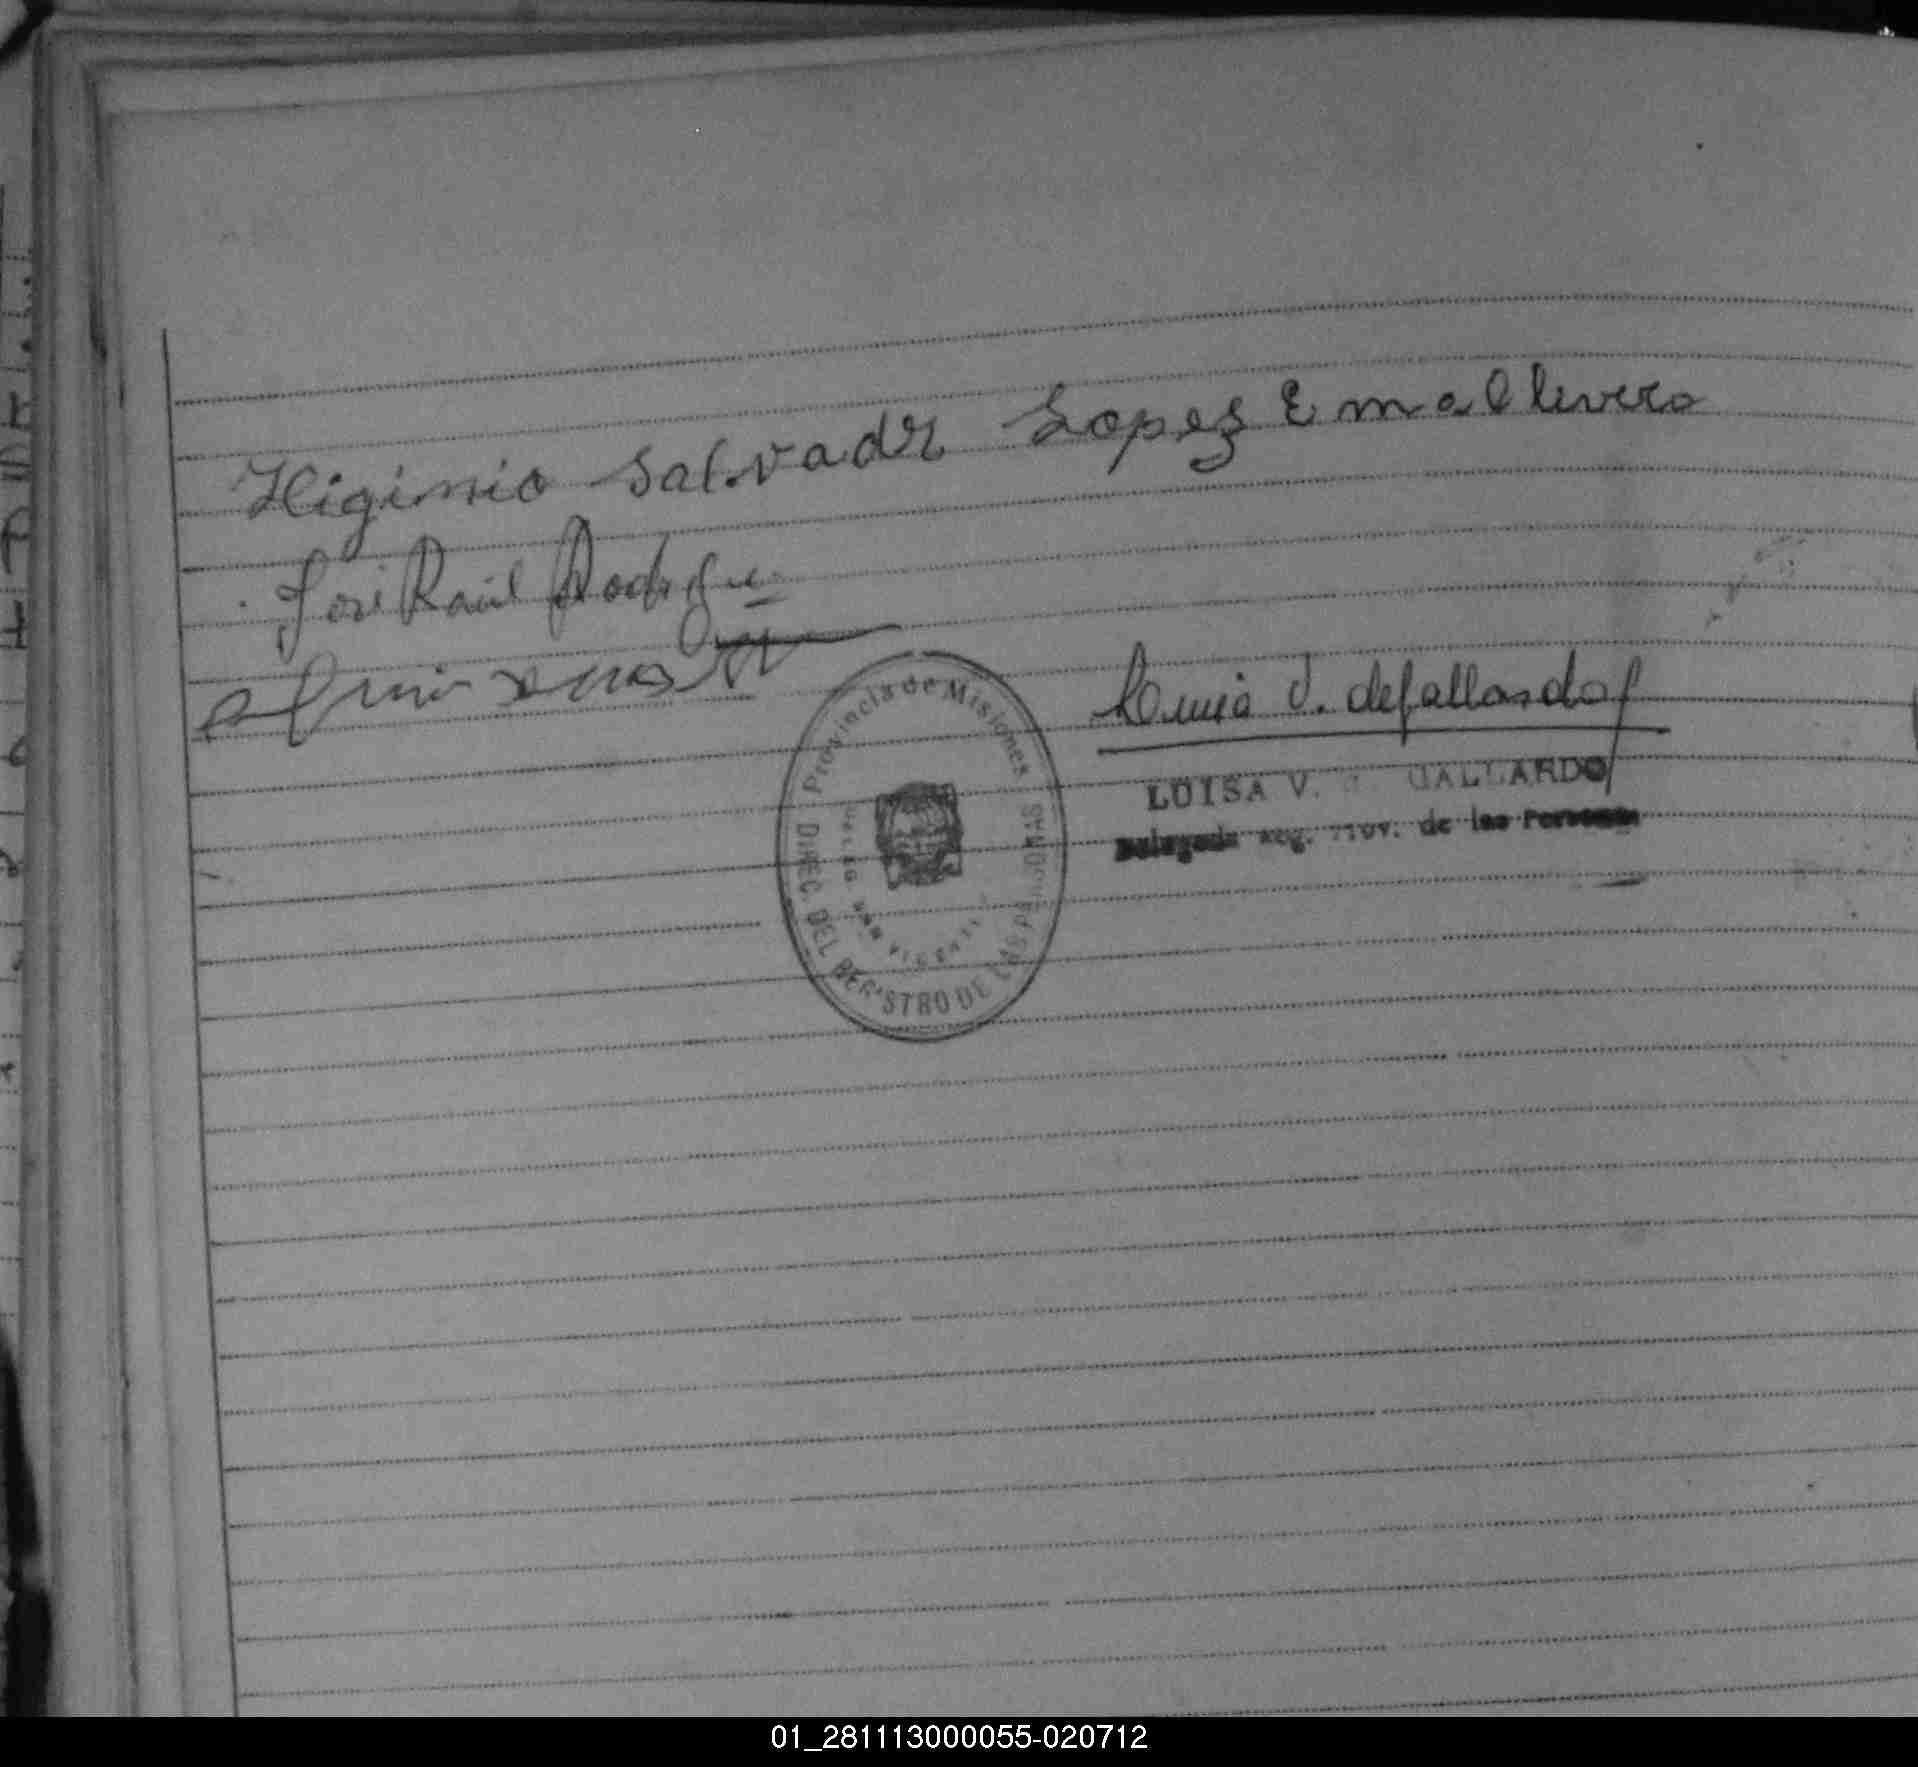 Higinio Salvador Lopez Ema Olivera
José Raúl Rodrigue
Luisa V. de Gallardo
LUISA V. GALLARDO
Delegada Reg. Prov. de las Personas
Provincia de Misiones
DIREC. DEL REGISTRO DE LAS PERSONAS
DELEG. SAN VICENTE
01_281113000055-020712